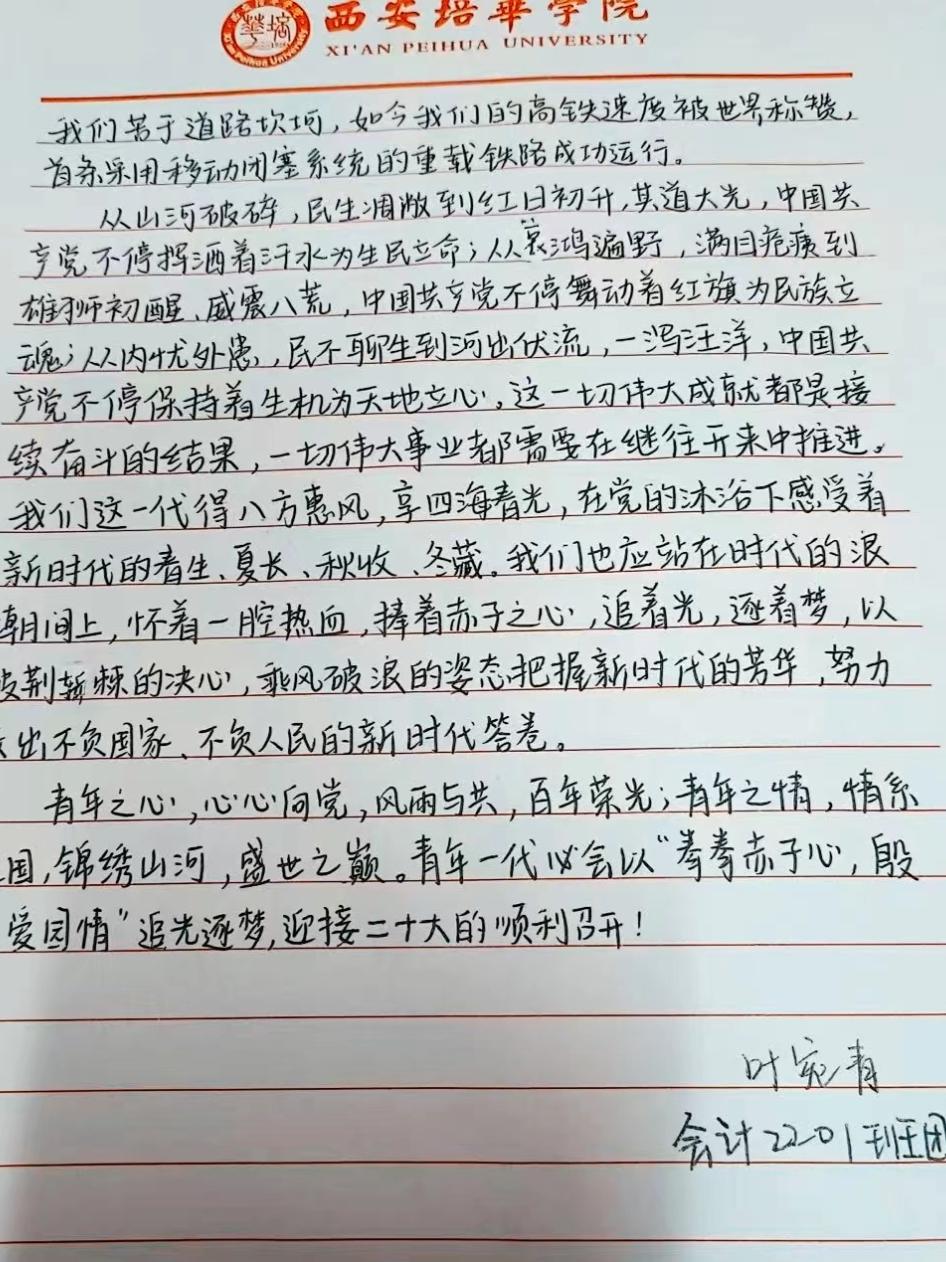 西安培華学院
XI'AN PEIHUA UNIVERSITY
華培
Xi'an Peihua University
我们苦于道路坎坷,如今我们的高铁速度被世界称赞,
首条采用移动闭塞系统的重载铁路成功运行。
从山河破碎,民生凋敝到红日初升,其道大光,中国共
产党不停挥洒着汗水为生民立命;从哀鸿遍野,满目疮痍到
雄狮初醒、威震八荒,中国共产党不停舞动着红旗为民族立
魂;从内忧外患,民不聊生到河出伏流,一泻汪洋,中国共
产党不停保持着生机为天地立心。这一切伟大成就都是接
续奋斗的结果,一切伟大事业都需要在继往开来中推进。
我们这一代得八方惠风,享四海春光,在党的沐浴下感受着
新时代的春生、夏长、秋收、冬藏。我们也应站在时代的浪
潮间上,怀着一腔热血,捧着赤子之心,追着光,逐着梦,以
披荆斩棘的决心,乘风破浪的姿态把握新时代的芳华,努力
出不负国家、不负人民的新时代答卷。
青年之心,心心向党,风雨与共,百年荣光;青年之情,情系
国,锦绣山河,盛世之巅。青年一代必会以“拳拳赤子心,殷
爱国情”追光逐梦,迎接二十大的顺利召开!
叶宛青
会计22-01班团